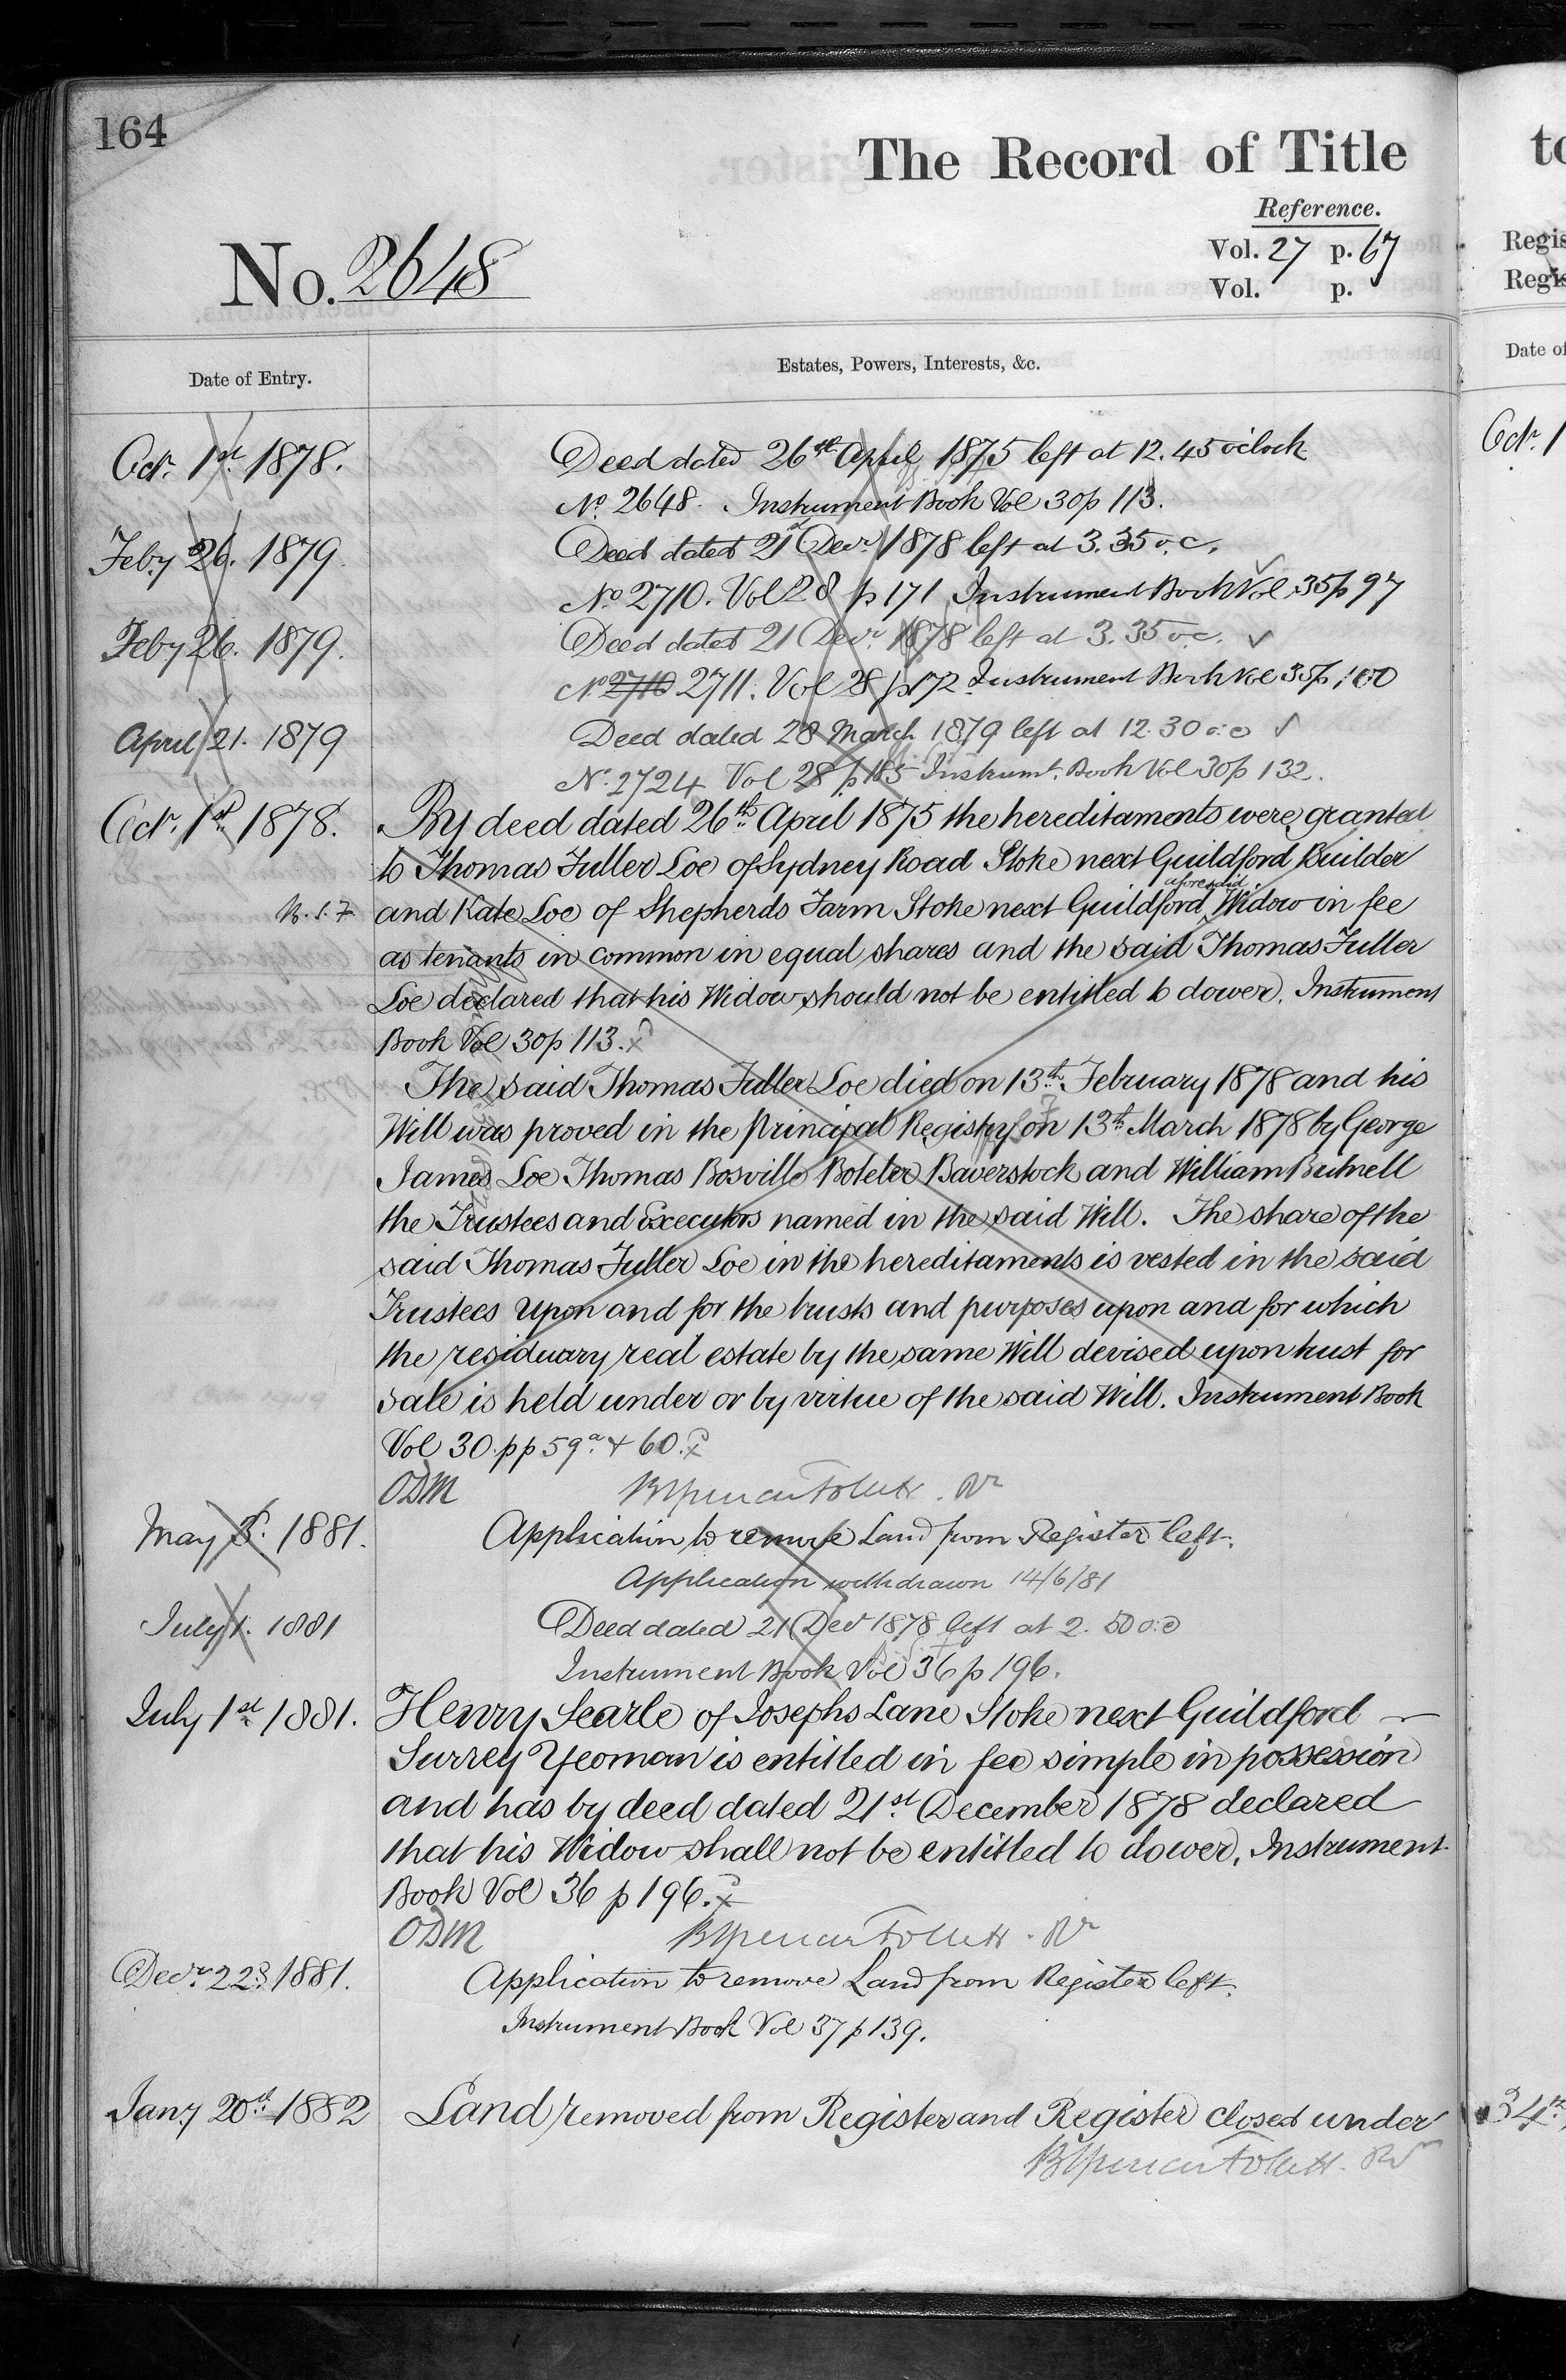 164
The Record of Title to
Reference.
No. 2648
Vol. 27 p. 67 Regis
Vol. p. Regis
Date of Entry. Estates, Powers, Interests, &c. Date of
Octr. 1st. 1878. Deed dated 26th April 1875 left at 12.45 o'clock Octr. 1
No. 2648. Instrument Book Vol 30 p 113.
Feby 26. 1879. Deed dated 21st Decr. 1878 left at 3.35 o.c.
No. 2710. Vol 28 p 171 Instrument Book Vol 35 p 97
Feby 26. 1879. Deed dated 21 Decr. 1878 left at 3.35 o.c. ✓
No. 2710 2711. Vol 28 p 172 Instrument Book Vol 35 p 100
April 21. 1879 Deed dated 28 March 1879 left at 12.30 o.c ✓
No. 2724 Vol 28 p 185 Instrumt. Book Vol 30 p 132.
Octr. 1st. 1878. By deed dated 26th April 1875 the hereditaments were granted
to Thomas Fuller Loe of Sydney Road Stoke next Guildford Builder
and Kate Loe of Shepherds Farm Stoke next Guildford aforesaid Widow in fee
as tenants in common in equal shares and the said Thomas Fuller
Loe declared that his Widow should not be entitled to dower. Instrument
Book Vol 30 p 113.
The said Thomas Fuller Loe died on 13th February 1878 and his
Will was proved in the Principal Registry on 13th March 1878 by George
James Loe Thomas Bosville Boteler Baverstock and William Butnell
the Trustees and Executors named in the said Will. The share of the
said Thomas Fuller Loe in the hereditaments is vested in the said
Trustees upon and for the trusts and purposes upon and for which
the residuary real estate by the same Will devised upon trust for
sale is held under or by virtue of the said Will. Instrument Book
Vol 30. pp 59a & 60.
ODM
May 1881. Application to remove Land from Register left.
Application withdrawn 14/6/81
July 1. 1881 Deed dated 21 Decr 1878 left at 2.50 o.c
Instrument Book Vol 36 p 196.
July 1st 1881. Henry Searle of Josephs Lane Stoke next Guildford
Surrey Yeoman is entitled in fee simple in possession
and has by deed dated 21st. December 1878 declared
that his Widow shall not be entitled to dower. Instrument
Book Vol 36 p 196.
ODM
Decr. 22d. 1881. Application to remove Land from Register left.
Instrument Book Vol 37 p 139.
Jany 20th 1882 Land removed from Register and Register closed under